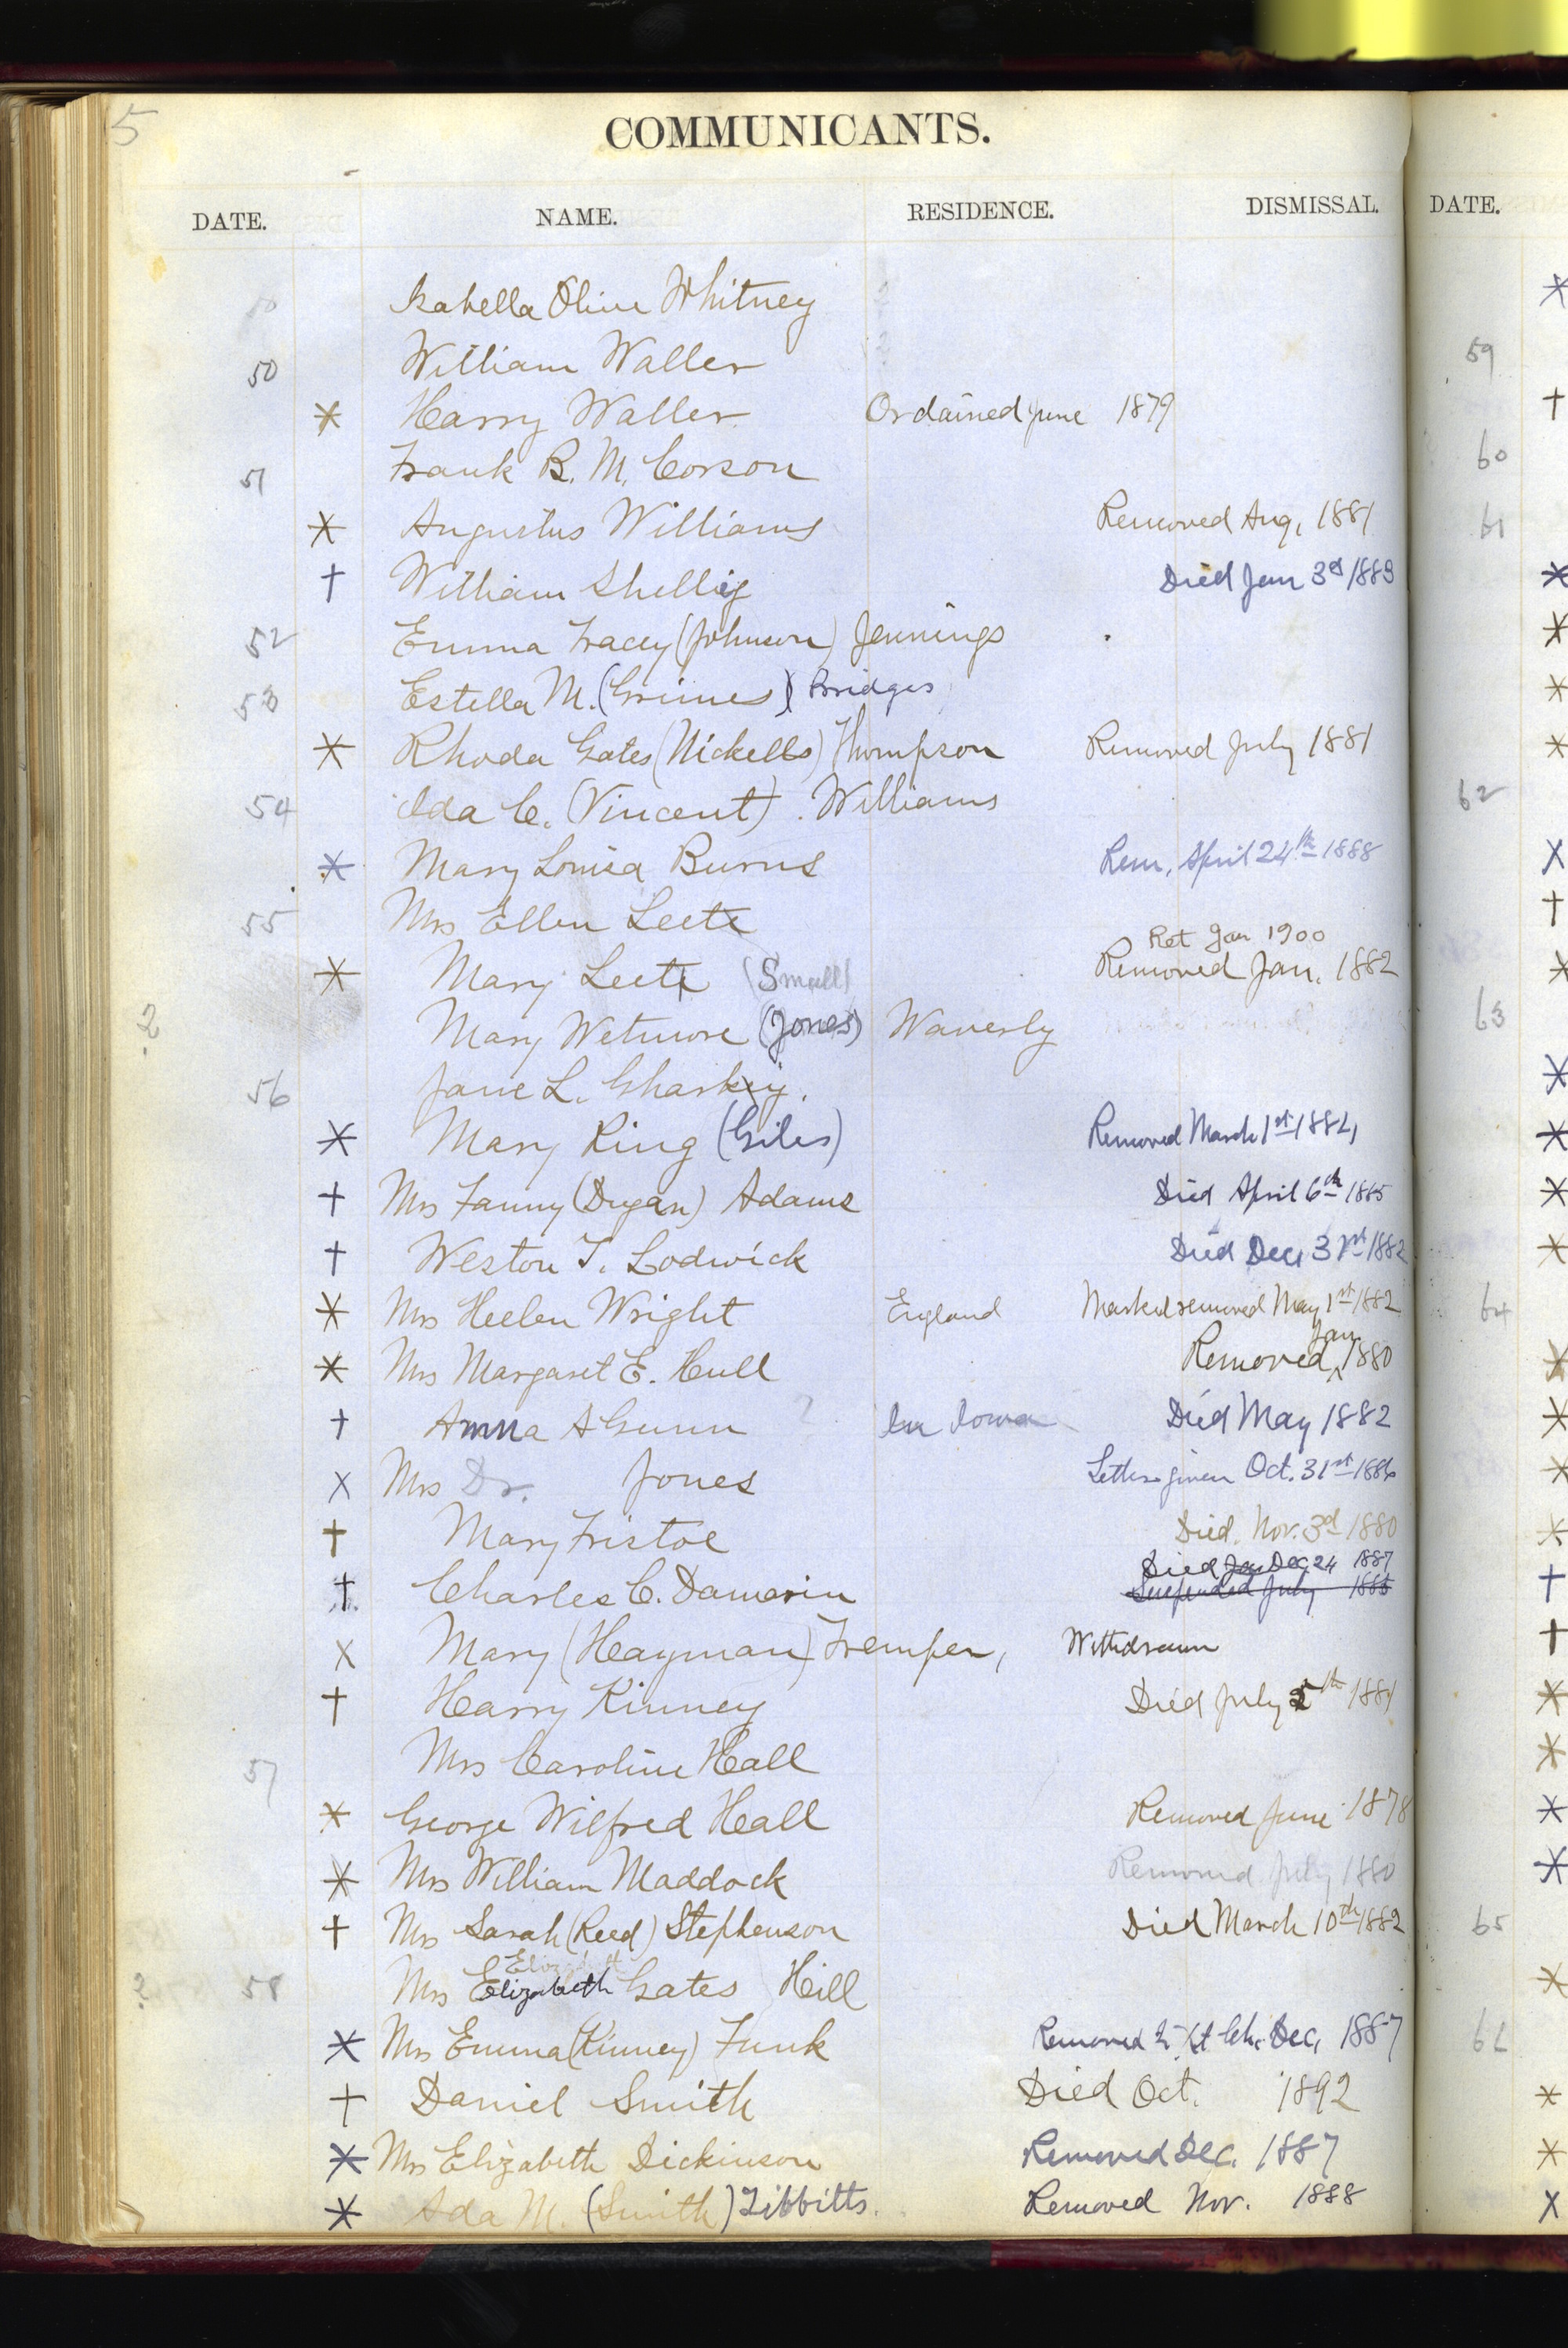 5
COMMUNICANTS.
DATE. NAME. RESIDENCE. DISMISSAL. DATE.
50 Isabella Olive Whitney
50 William Waller 59
* Harry Waller Ordained June 1879 †
51 Frank B. M. Corson 60
* Augustus Williams Removed Aug. 1881 61
† William Shellig Died Jan 3rd 1883 *
52 Emma Tracey (Johnson) Jennings *
53 Estella M. (Grimes) Bridges *
* Rhoda Gates (Nickells) Thompson Removed July 1881 *
54 Ida C. (Vincent). Williams 62
* Mary Louisa Burns Rem. April 24th 1888 X
55 Mrs Ellen Leete †
Ret Jan 1900
* Mary Leete (Small) Removed Jan. 1882 *
? Mary Wetmore (Jones) Waverly 63
56 Jane L. Sharkey. *
* Mary Ring (Giles) Removed March 1st 1882, *
† Mrs Fanny (Dugan) Adams Died April 6th 1885 *
† Weston T. Lodwick Died Dec, 31st 1882 *
* Mrs Heelen Wright England Marked removed May 1st 1882 64
Jan
* Mrs Margaret E. Hull Removed ^ 1880 *
† Anna A Gunn ? In Iowa Died May 1882 *
X Mrs Dr. Jones Letter given Oct. 31st 1886 *
† Mary Fristoe Died. Nov. 3rd 1880 *
Died Jan Dec 24 1887
† Charles C. Damarin Suspended July 1885 †
X Mary (Hayman) Tremper, Withdrawn †
† Harry Kinney Died July 5th 1881 *
57 Mrs Caroline Hall *
* George Wilfred Hall Removed June 1878 *
* Mrs William Maddock Removed July 1880 *
† Mrs Sarah (Reed) Stephenson Died March 10th 1882 65
Elizabeth
? 58 Mrs Elizabeth Gates Hill *
* Mrs Emma (Kinney) Funk Removed to 1st Ch. Dec, 1887
† Daniel Smith Died Oct. 1892 *
* Mrs Elizabeth Dickinson Removed Dec. 1887 *
* Ada M. (Smith) Tibbitts. Removed Nov. 1888 X